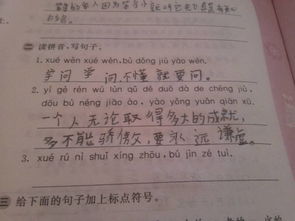 二、读拼音,写句子。
1. xué wèn xué wèn, bù dǒng jiù yào wèn.
学问学问,不懂就要问。
2. yí gè rén wú lùn qǔ dé duō dà de chéng jiù,
dōu bù néng jiāo ào, yào yǒng yuǎn qiān xū.
一个人无论取得多大的成就,
多不能骄傲,要永远谦虚。
3. xué rú nì shuǐ xíng zhōu, bú jìn zé tuì.
三、给下面的句子加上标点符号。